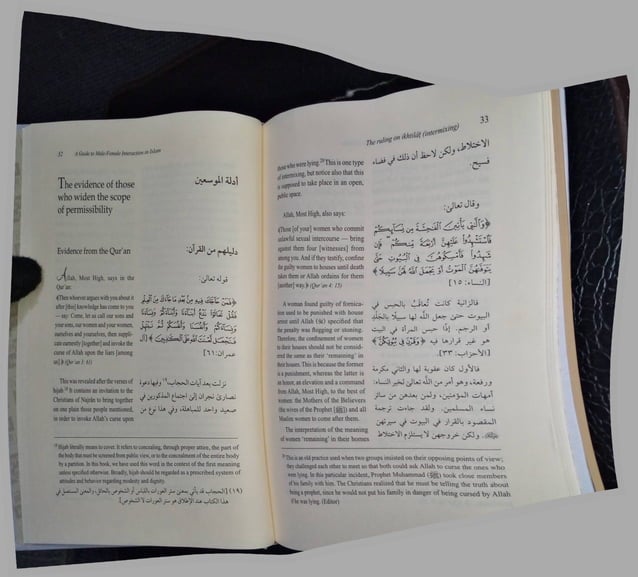 32 A Guide to Male-Female Interaction in Islam
The evidence of those
who widen the scope
of permissibility
أدلة الموسعين
Evidence from the Qur'an
دليلهم من القرآن:
Allah, Most High, says in the
Qur'an:
﴾Then whoever argues with you about it
after [this] knowledge has come to you
— say: Come, let us call our sons and
your sons, our women and your women,
ourselves and yourselves, then suppli-
cate earnestly [together] and invoke the
curse of Allah upon the liars [among
us].﴿ (Qur'an 3: 61)
قوله تعالى:
﴿فَمَنْ حَاجَّكَ فِيهِ مِنْ بَعْدِ مَا جَاءَكَ مِنَ الْعِلْمِ
فَقُلْ تَعَالَوْا نَدْعُ أَبْنَاءَنَا وَأَبْنَاءَكُمْ
وَنِسَاءَنَا وَنِسَاءَكُمْ وَأَنْفُسَنَا وَأَنْفُسَكُمْ ثُمَّ نَبْتَهِلْ
فَنَجْعَلْ لَعْنَتَ اللَّهِ عَلَى الْكَاذِبِينَ﴾ [آل
عمران: ٦١]
This was revealed after the verses of
hijab.19 It contains an invitation to the
Christians of Najrân to bring together
on one plain those people mentioned,
in order to invoke Allah's curse upon
نزلت بعد آيات الحجاب،١٩ وفيها دعوة
نصارى نجران إلى اجتماع المذكورين في
صعيد واحد للمباهلة، وفي هذا نوع من
19 Hijab literally means to cover. It refers to concealing, through proper attire, the part of
the body that must be screened from public view, or to the concealment of the entire body
by a partition. In this book, we have used this word in the context of the first meaning
unless specified otherwise. Broadly, hijab should be regarded as a prescribed system of
attitudes and behavior regarding modesty and dignity.
(١٩) [الحجاب قد يأتي بمعنى ستر العورات باللباس أو الشخوص بالحائل، والمعنى المستعمل في
هذا الكتاب عند الإطلاق هو ستر العورات لا الشخوص]
The ruling on ikhtilâṭ (intermixing) 33
those who were lying.20 This is one type
of intermixing, but notice also that this
is supposed to take place in an open,
public space.
الاختلاط، ولكن لاحظ أن ذلك في فضاء
فسيح.
Allah, Most High, also says:
﴾Those [of your] women who commit
unlawful sexual intercourse — bring
against them four [witnesses] from
among you. And if they testify, confine
the guilty women to houses until death
takes them or Allah ordains for them
[another] way.﴿ (Qur'an 4: 15)
وقال تعالى:
﴿وَاللَّاتِي يَأْتِينَ الْفَاحِشَةَ مِنْ نِسَائِكُمْ
فَاسْتَشْهِدُوا عَلَيْهِنَّ أَرْبَعَةً مِنْكُمْ فَإِنْ
شَهِدُوا فَأَمْسِكُوهُنَّ فِي الْبُيُوتِ حَتَّى
يَتَوَفَّاهُنَّ الْمَوْتُ أَوْ يَجْعَلَ اللَّهُ لَهُنَّ سَبِيلًا﴾
[النساء: ١٥]
A woman found guilty of fornica-
tion used to be punished with house
arrest until Allah (ﷻ) specified that
the penalty was flogging or stoning.
Therefore, the confinement of women
to their houses should not be consid-
ered the same as their 'remaining' in
their houses. This is because the former
is a punishment, whereas the latter is
an honor, an elevation and a command
from Allah, Most High, to the best of
women: the Mothers of the Believers
(the wives of the Prophet [ﷺ]) and all
Muslim women to come after them.
فالزانية كانت تُعاقَبُ بالحبس في
البيوت حتى جعل الله لها سبيلًا بالجَلْدِ
أو الرجم. إذًا حبس المرأة في البيت
هو غير قرارها فيه ﴿وَقَرْنَ فِي بُيُوتِكُنَّ﴾
[الأحزاب: ٣٣].
فالأول كان عقوبة لها والثاني مكرمة
ورفعة، وهو أمر من الله تعالى لخير النساء:
أمهات المؤمنين، ولمن بعدهن من سائر
نساء المسلمين. ولقد جاءت ترجمة
المقصود بالقرار في البيوت في سيرتهن
ولكن خروجهن لا يستلزم الاختلاط
The interpretation of the meaning
of women 'remaining' in their homes
20 This is an old practice used when two groups insisted on their opposing points of view;
they challenged each other to meet so that both could ask Allah to curse the ones who
were lying. In this particular incident, Prophet Muhammad (ﷺ) took close members
of his family with him. The Christians realized that he must be telling the truth about
being a prophet, since he would not put his family in danger of being cursed by Allah
if he was lying. (Editor)